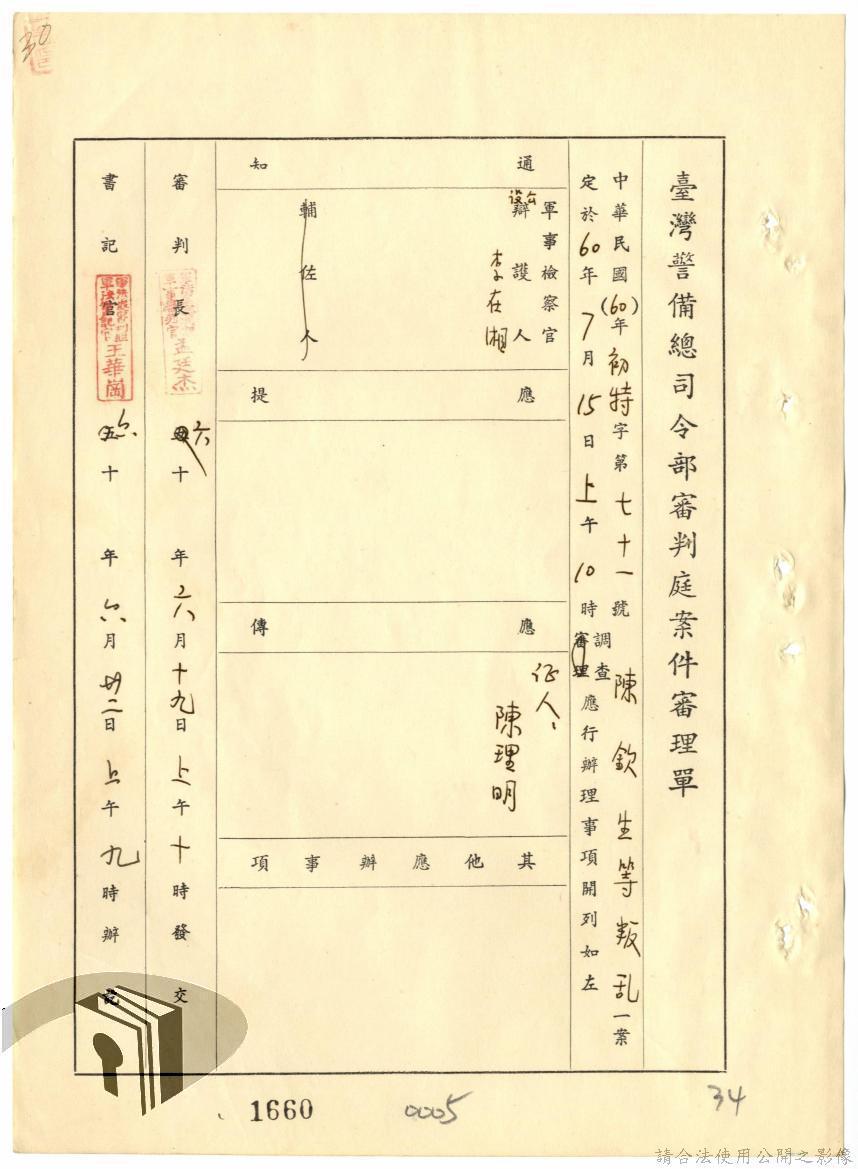 30
臺灣警備總司令部審判庭案件審理單
中華民國(60)年初特字第七十一號陳欽生等叛乱一案
定於60年7月15日上午10時調查審理應行辦理事項開列如左
通知
軍事檢察官
公設辯護人
李在湘
輔佐人
應提
應傳
证人、
陳理明
其他應辦事項
審判長
孟廷杰
六十年六月十九日上午十時發交
書記官
王華崗
六十年六月廿二日上午九時辦
1660
0005
34
請合法使用公開之影像